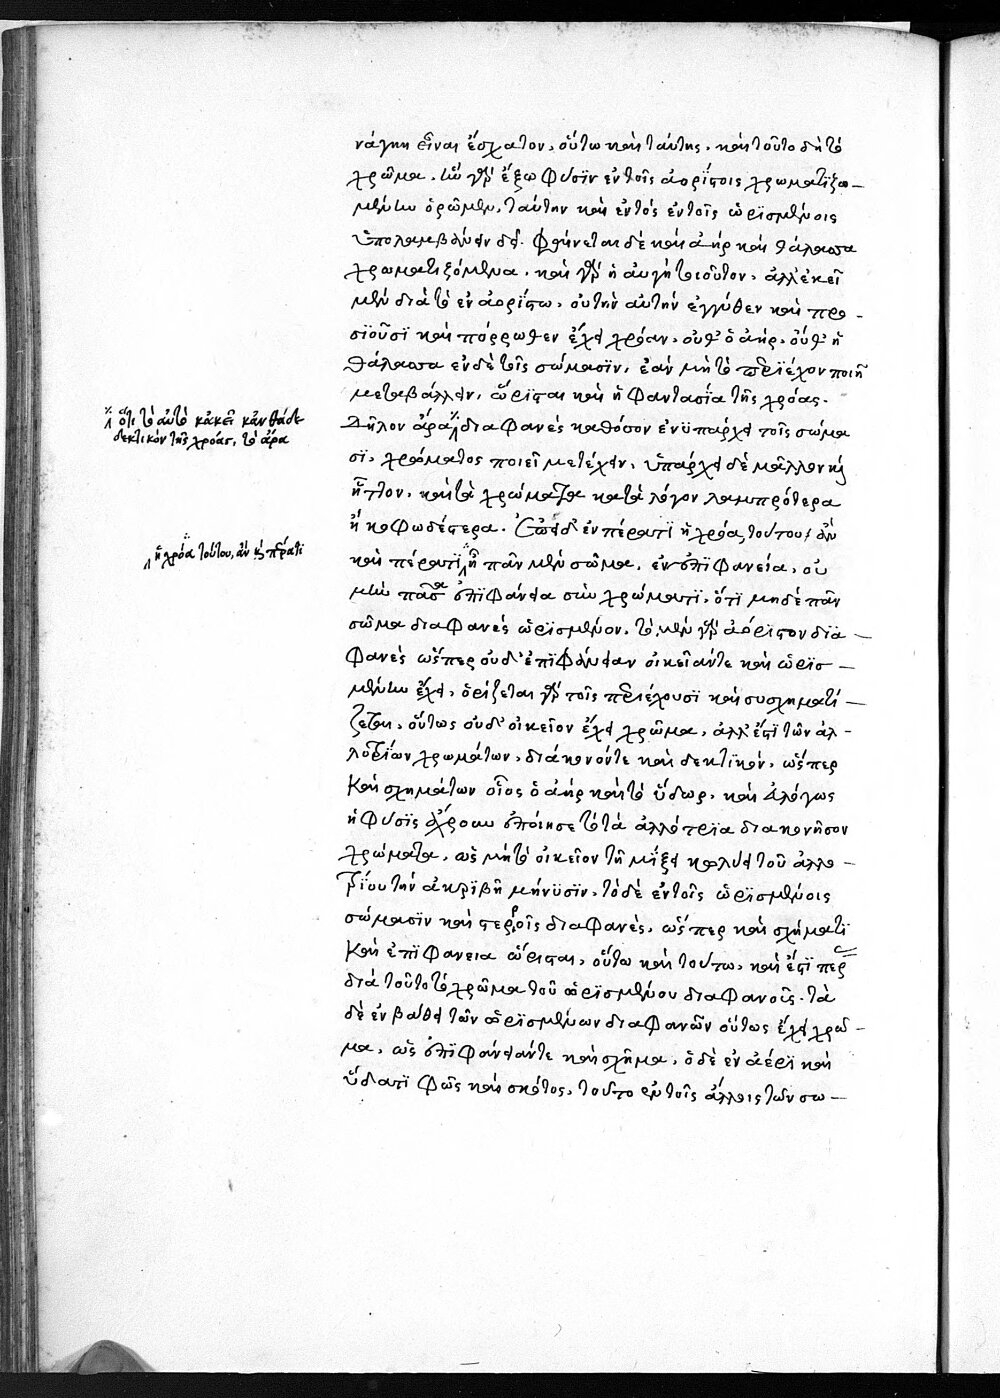 νάγκη εἶναι ἔσχατον, οὕτω καὶ ταύτης. καὶ τοῦτο δὴ τὸ
χρῶμα. ἣν γὰρ ἔξω φύσϊν ἐν τοῖς ἀορίστοις χρωματϊζο—
μένην ὁρῶμεν, ταύτην καὶ ἐντὸς ἐν τοῖς ὡρϊσμένοις
ὑπολαμβάνειν δεῖ. φαίνεται δὲ καὶ ἀὴρ καὶ θάλασσα
χρωματιζόμενα. καὶ γὰρ ἡ αὐγὴ τοιοῦτον. ἀλλ' ἐκεῖ
μὲν διὰ τὸ ἐν ἀορίστω, οὐ τὴν αὐτὴν ἐγγύθεν καὶ προ-
σϊοῦσϊ καὶ πόρρωθεν ἔχει χρόαν, οὔθ' ὁ ἀὴρ, οὔθ' ἡ
θάλασσα ἐν δὲ τοῖς σώμασϊν, ἐὰν μὴ τὸ περϊέχον ποιῆ
μεταβάλλειν, ὥρϊσται καὶ ἡ φαντασία τῆς χρόας.
ὅτι τὸ αὐτὸ κἀκεῖ κἀνθάδε
δεκτικὸν τῆς χροάσ, τὸ ἄρα
Δῆλον ἄρα διαφανὲς καθόσον ἐνϋπάρχει τοῖς σώμα
σϊ, χρώματος ποιεῖ μετέχειν. ὑπάρχει δὲ μᾶλλον καὶ
ἧττον, καὶ τὰ χρώματα κατὰ λόγον λαμπρότερα
ἢ κοφωδέστερα. ἐπεὶ δ' ἐν πέρατϊ ἡ χρόα, τούτου ἂν
ἡ χρόα τούτου, ἂν καὶ πέρατι
καὶ πέρατϊ ἢ πᾶν μὲν σῶμα, ἐν ἐπϊφανεία, οὐ
μὴν πᾶσα ἐπϊφάνεια σὺν χρώματϊ, ὅτϊ μηδὲ πᾶν
σῶμα διαφανὲς ὡρϊσμένον. τὸ μὲν γὰρ ἀόρϊστον δϊα—
φανὲς ὥσπερ οὐδ' ἐπϊφάνειαν οἰκείαν τε καὶ ὡρϊσ—
μένην ἔχει, ὁρίζεται γὰρ τοῖς περϊέχουσϊ καὶ συσχηματί—
ζεται, οὕτως οὐδ' οἰκεῖον ἔχει χρῶμα, ἀλλ' ἔστϊ τῶν ἀλ-
λοτρίων χρωμάτων, διάκονόν τε καὶ δεκτϊκόν, ὥσπερ
καὶ σχημάτων οἷος ὁ ἀὴρ καὶ τὸ ὕδωρ, καὶ ἀλόγως
ἡ φύσϊς ἄχροαν ἐποίησε τὸ τὰ ἀλλότρϊα διακονῆσον
χρώματα, ὡς μὴ τὸ οἰκεῖον τῆ μίξει κωλύει τοῦ ἀλλο—
τρίου τὴν ἀκρϊβῆ μήνυσϊν. τὸ δὲ ἐν τοῖς ὡρϊσμένοις
σώμασϊν καὶ στερροῖς διαφανὲς, ὥσπερ καὶ σχήματϊ
καὶ ἐπϊφανεια ὥρισται, οὕτω καὶ τούτω. καὶ ἔστϊ πέρ
διὰ τοῦτο τὸ χρῶμα τοῦ ὡρϊσμένου διαφανοῦς. τὰ
δὲ ἐν βάθει τῶν ὡρϊσμένων διαφανῶν οὕτως ἔχει χρῶ—
μα, ὡς ἐπϊφάνειάν τε καὶ σχῆμα. ὃ δὲ ἐν ἀέρϊ καὶ
ὕδατϊ φῶς καὶ σκότος, τοῦτο ἐν τοῖς ἄλλοις τῶν σω—